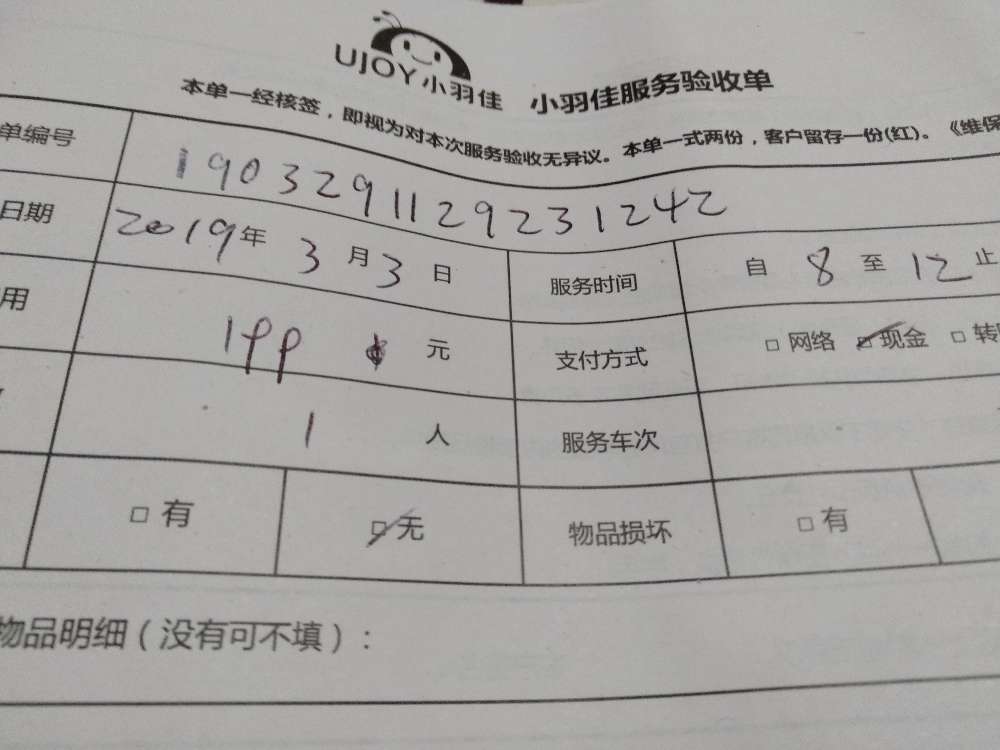 UJOY小羽佳 小羽佳服务验收单
本单一经核签，即视为对本次服务验收无异议。本单一式两份，客户留存一份(红)。《维保
单编号 1903291129231242
日期 2019年 3月3日 服务时间 自 8 至 12 止
用 元 支付方式 □ 网络 ☑ 现金 □ 转
1 人 服务车次
□ 有 ☑ 无 物品损坏 □ 有
物品明细（没有可不填）：